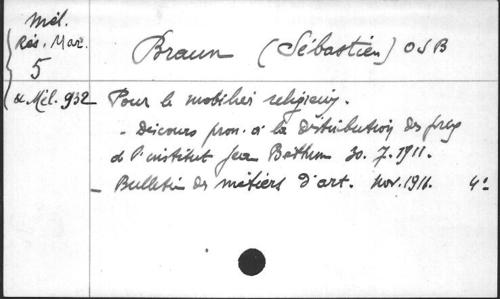 Mél.
Rés. Mar.
5
& Mél. 932
Braun (Sébastien) OSB
Pour le mobilier religieux.
- Discours pron. à la distribution des prix
de l'institut Jean Bethune 30.7.1911.
- Bulletin des métiers d'art. nov. 1911. 4°